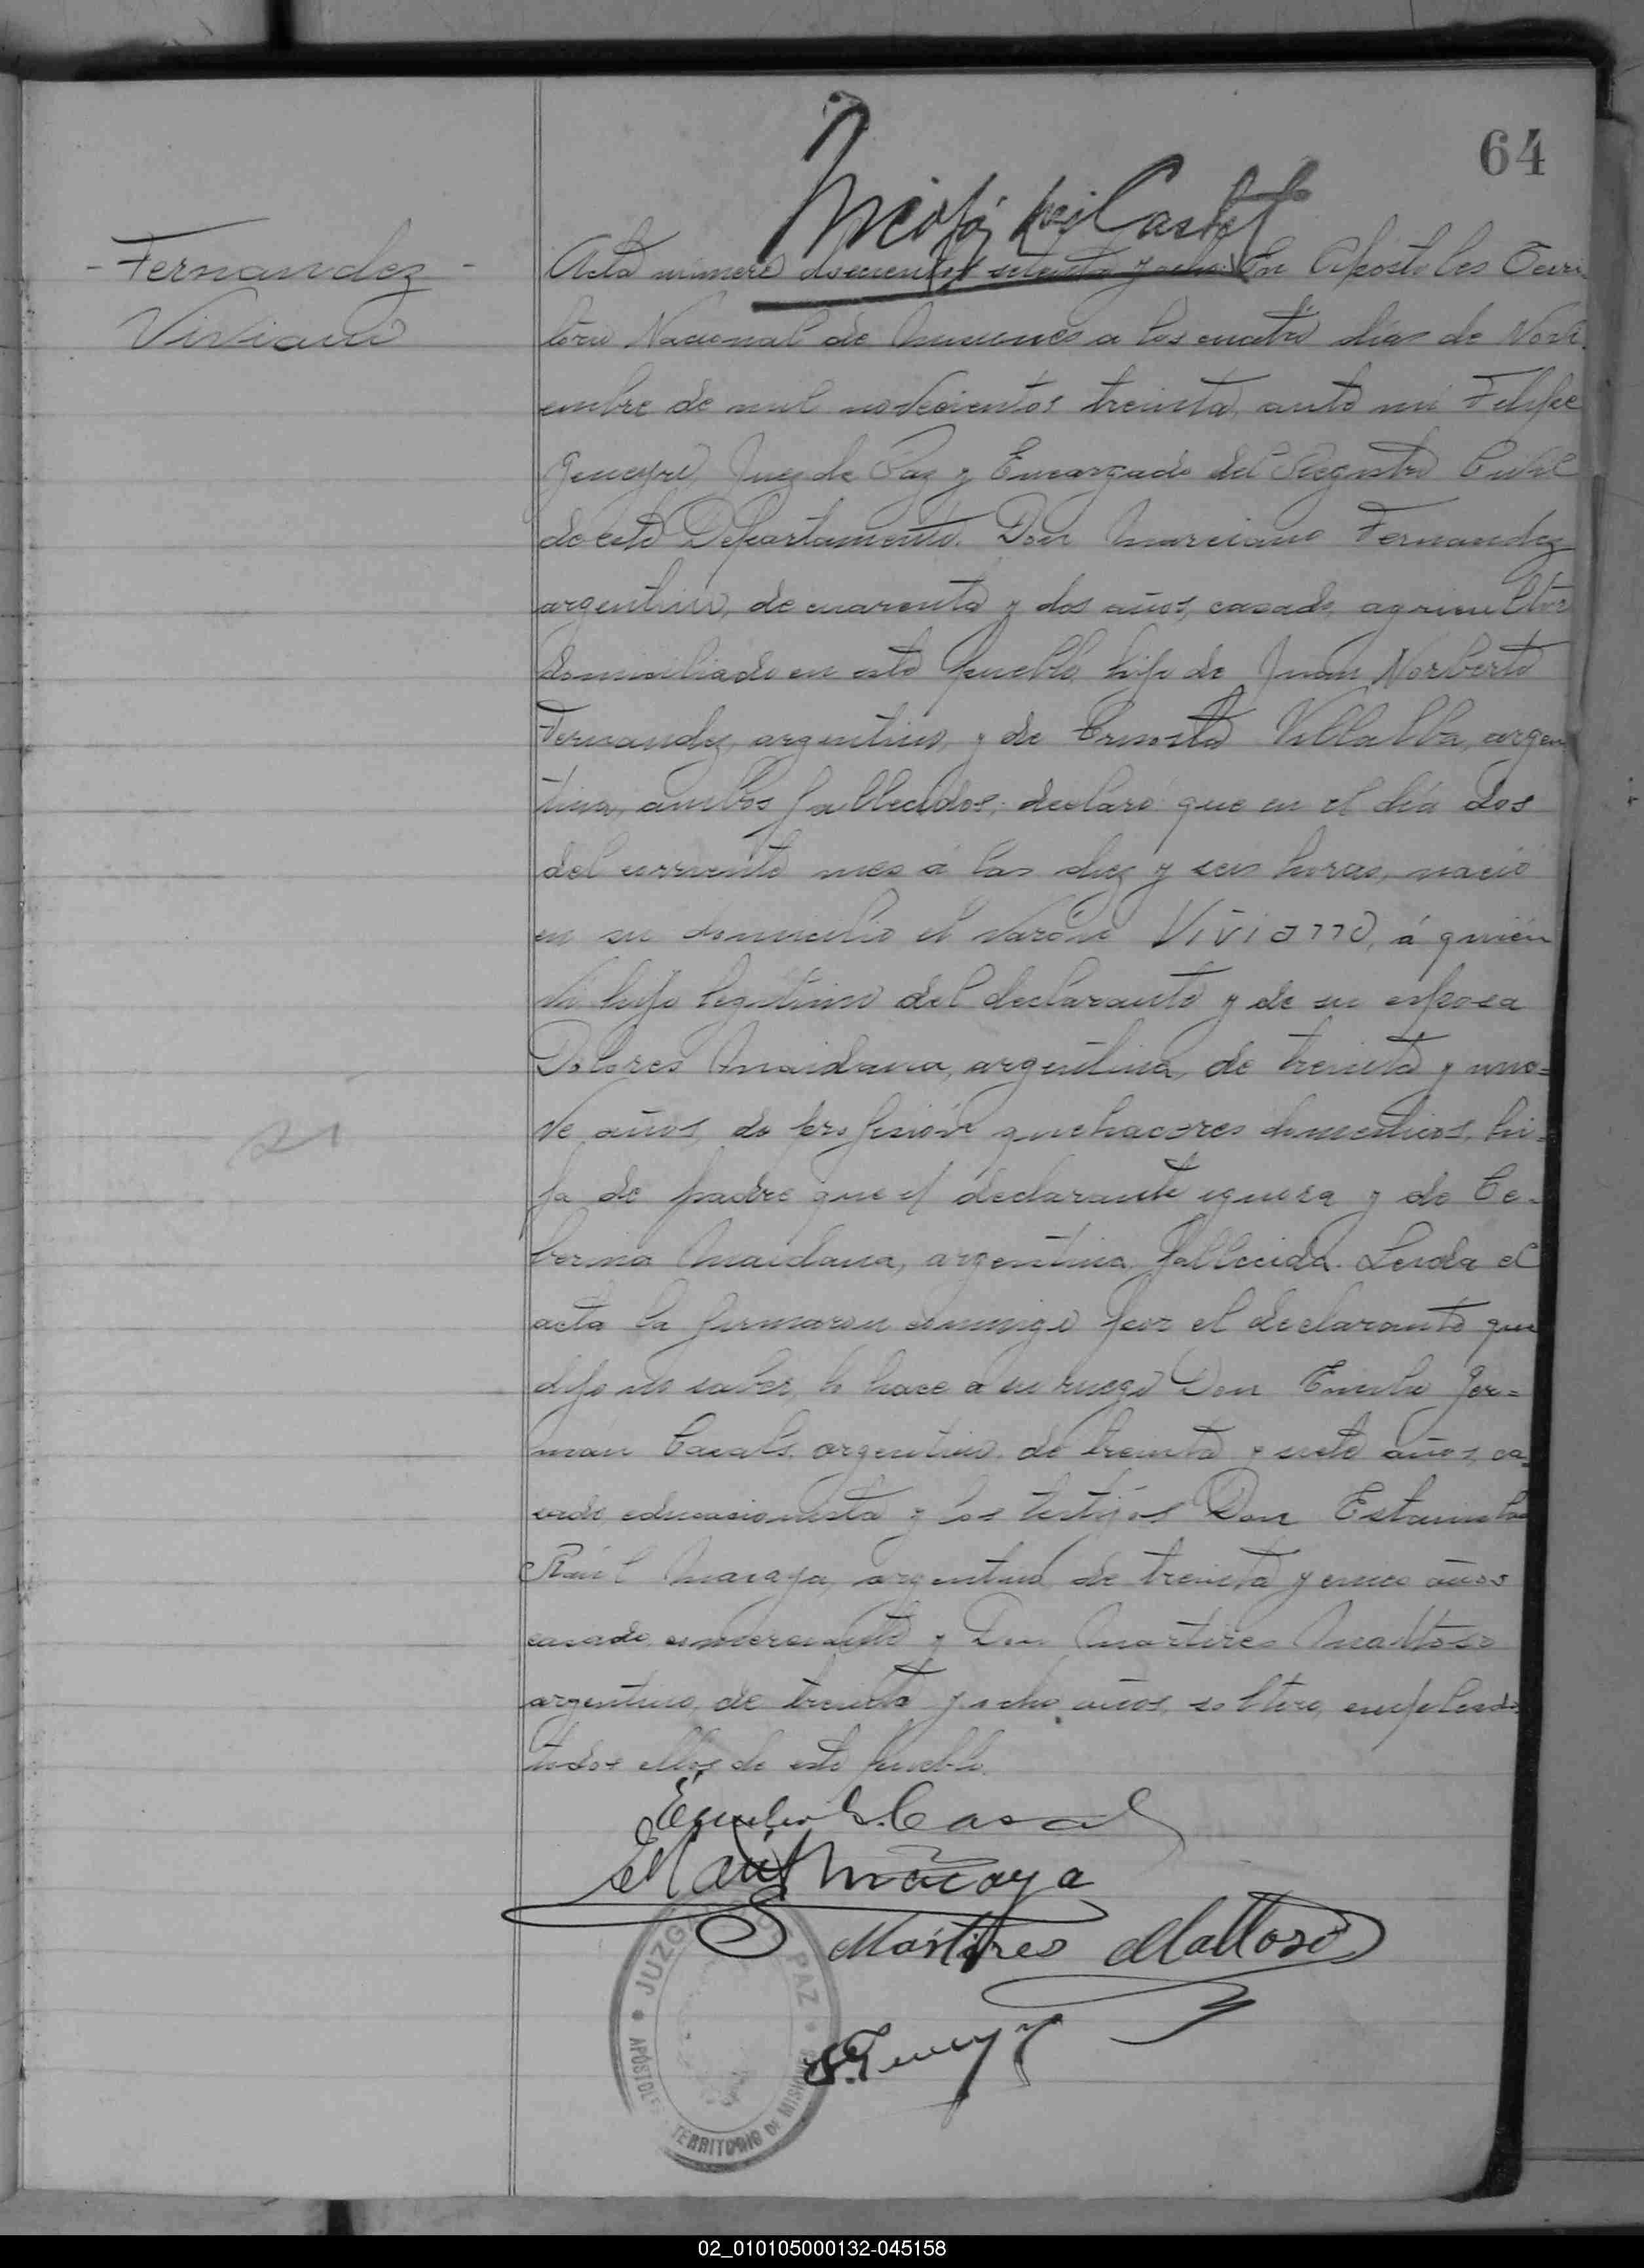 64
- Fernandez -
Viviano
Acta número doscientos setenta y ocho: En Apostoles Terri-
torio Nacional de Misiones a los cuatro días de Novi-
embre de mil novecientos treinta, ante mi Felipe
Geneyro, Juez de Paz y Encargado del Registro Civil
de este Departamento. Don Marciano Fernandez
argentino, de cuarenta y dos años, casado, agricultor
domiciliado en este pueblo, hijo de Juan Norberto
Fernandez, argentino, y de Villalba, argen
tina, ambos fallecidos; declaró: que en el día dos
del corriente mes á las diez y seis horas, nació
en su domicilio el varón Viviano, á quién
vi hijo legitimo del declarante y de su esposa
Dolores Maidana, argentina, de treinta y nue=
ve años, de profesión quehaceres domesticos, hi=
ja de padre que el declarante ignora y de Ce-
Maidana, argentina, fallecida. Leida el
acta la firmaron conmigo por el declarante que
dijo no saber, lo hace a su ruego Don Emilio Ger=
mán Casals, argentino, de treinta y siete años, ca-
sado, educacionista y los testigos Don Estanislao
Raúl Macaya, argentino, de treinta y cinco años
casado, comerciante y Don Martires Mattoso
argentino, de treinta y ocho años, soltero, empleado
todos ellos de este pueblo.
Emilio G. Casal
E Raúl Macaya
Martires Mattoso
JUZGADO DE PAZ
APÓSTOLES TERRITORIO DE MISIONES
F. Geneyro
21
02_010105000132-045158